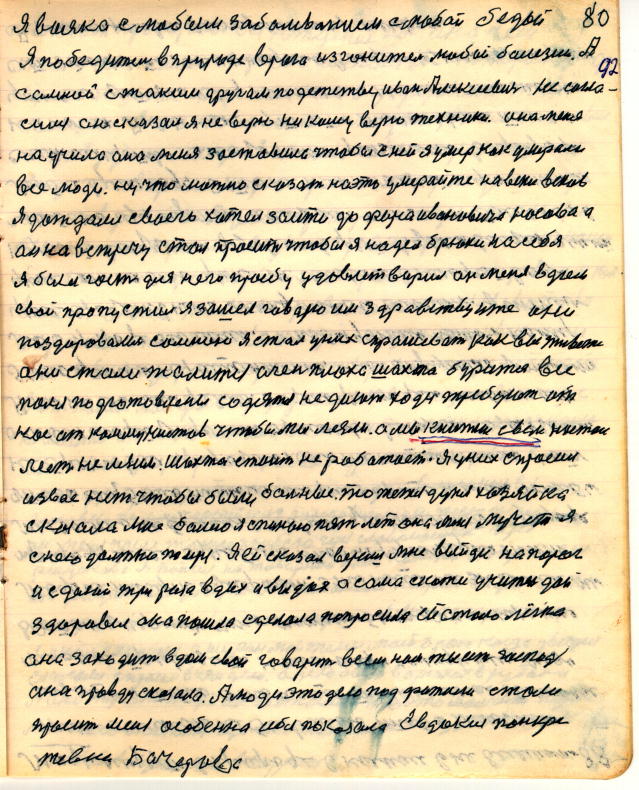 Я вояка с любым заболеванием с любой бедой 80
Я победител в природе врага изгонител любой болезни. А 92
самной с таким другам подетству иван Алексиевич не согла-
сился он сказал я не верю никому верю технике. она меня
научила она меня заставила чтобы с ней я умер как умирали
все люди. ну что можно сказат на это умирайте на веки веков
Я дождался своего хотел зайти до фана ивановича носова а
он на встречу стал просит чтобы я надел брюки на себя
я был гост для него прозбу удовлетварил он меня в дом
свой пропустил я зашел говарю им здравствуите они
поздаровалис сомною я стал у них спрашеват как вы живете
они стали жалится очен плохо шахта бурится все
поля подготовлены содятся не дают ходу требуют
кос от коммунистов чтобы мы лезли. а мы книжки свои
лест не лезим. Шахта стоит не работает. Я у них спросил
а у вас нет чтобы были болные. то жена дуня хозяйка
сказала мне болно я спиною пят лет она меня мучает я
с нею должна жит. Я ей сказал верит мне выйди на порог
и сделай три раза вдих и выдох а сама скажи учител дай
здоровия она пошла сделала попросила ей стало легко
она заходит в дом свой говарит всем нам тысяч господ
она правду сказала. А люди это дело подхватили стали
просит меня особенна себя показала Евдокия панкра
тевна Бочарова